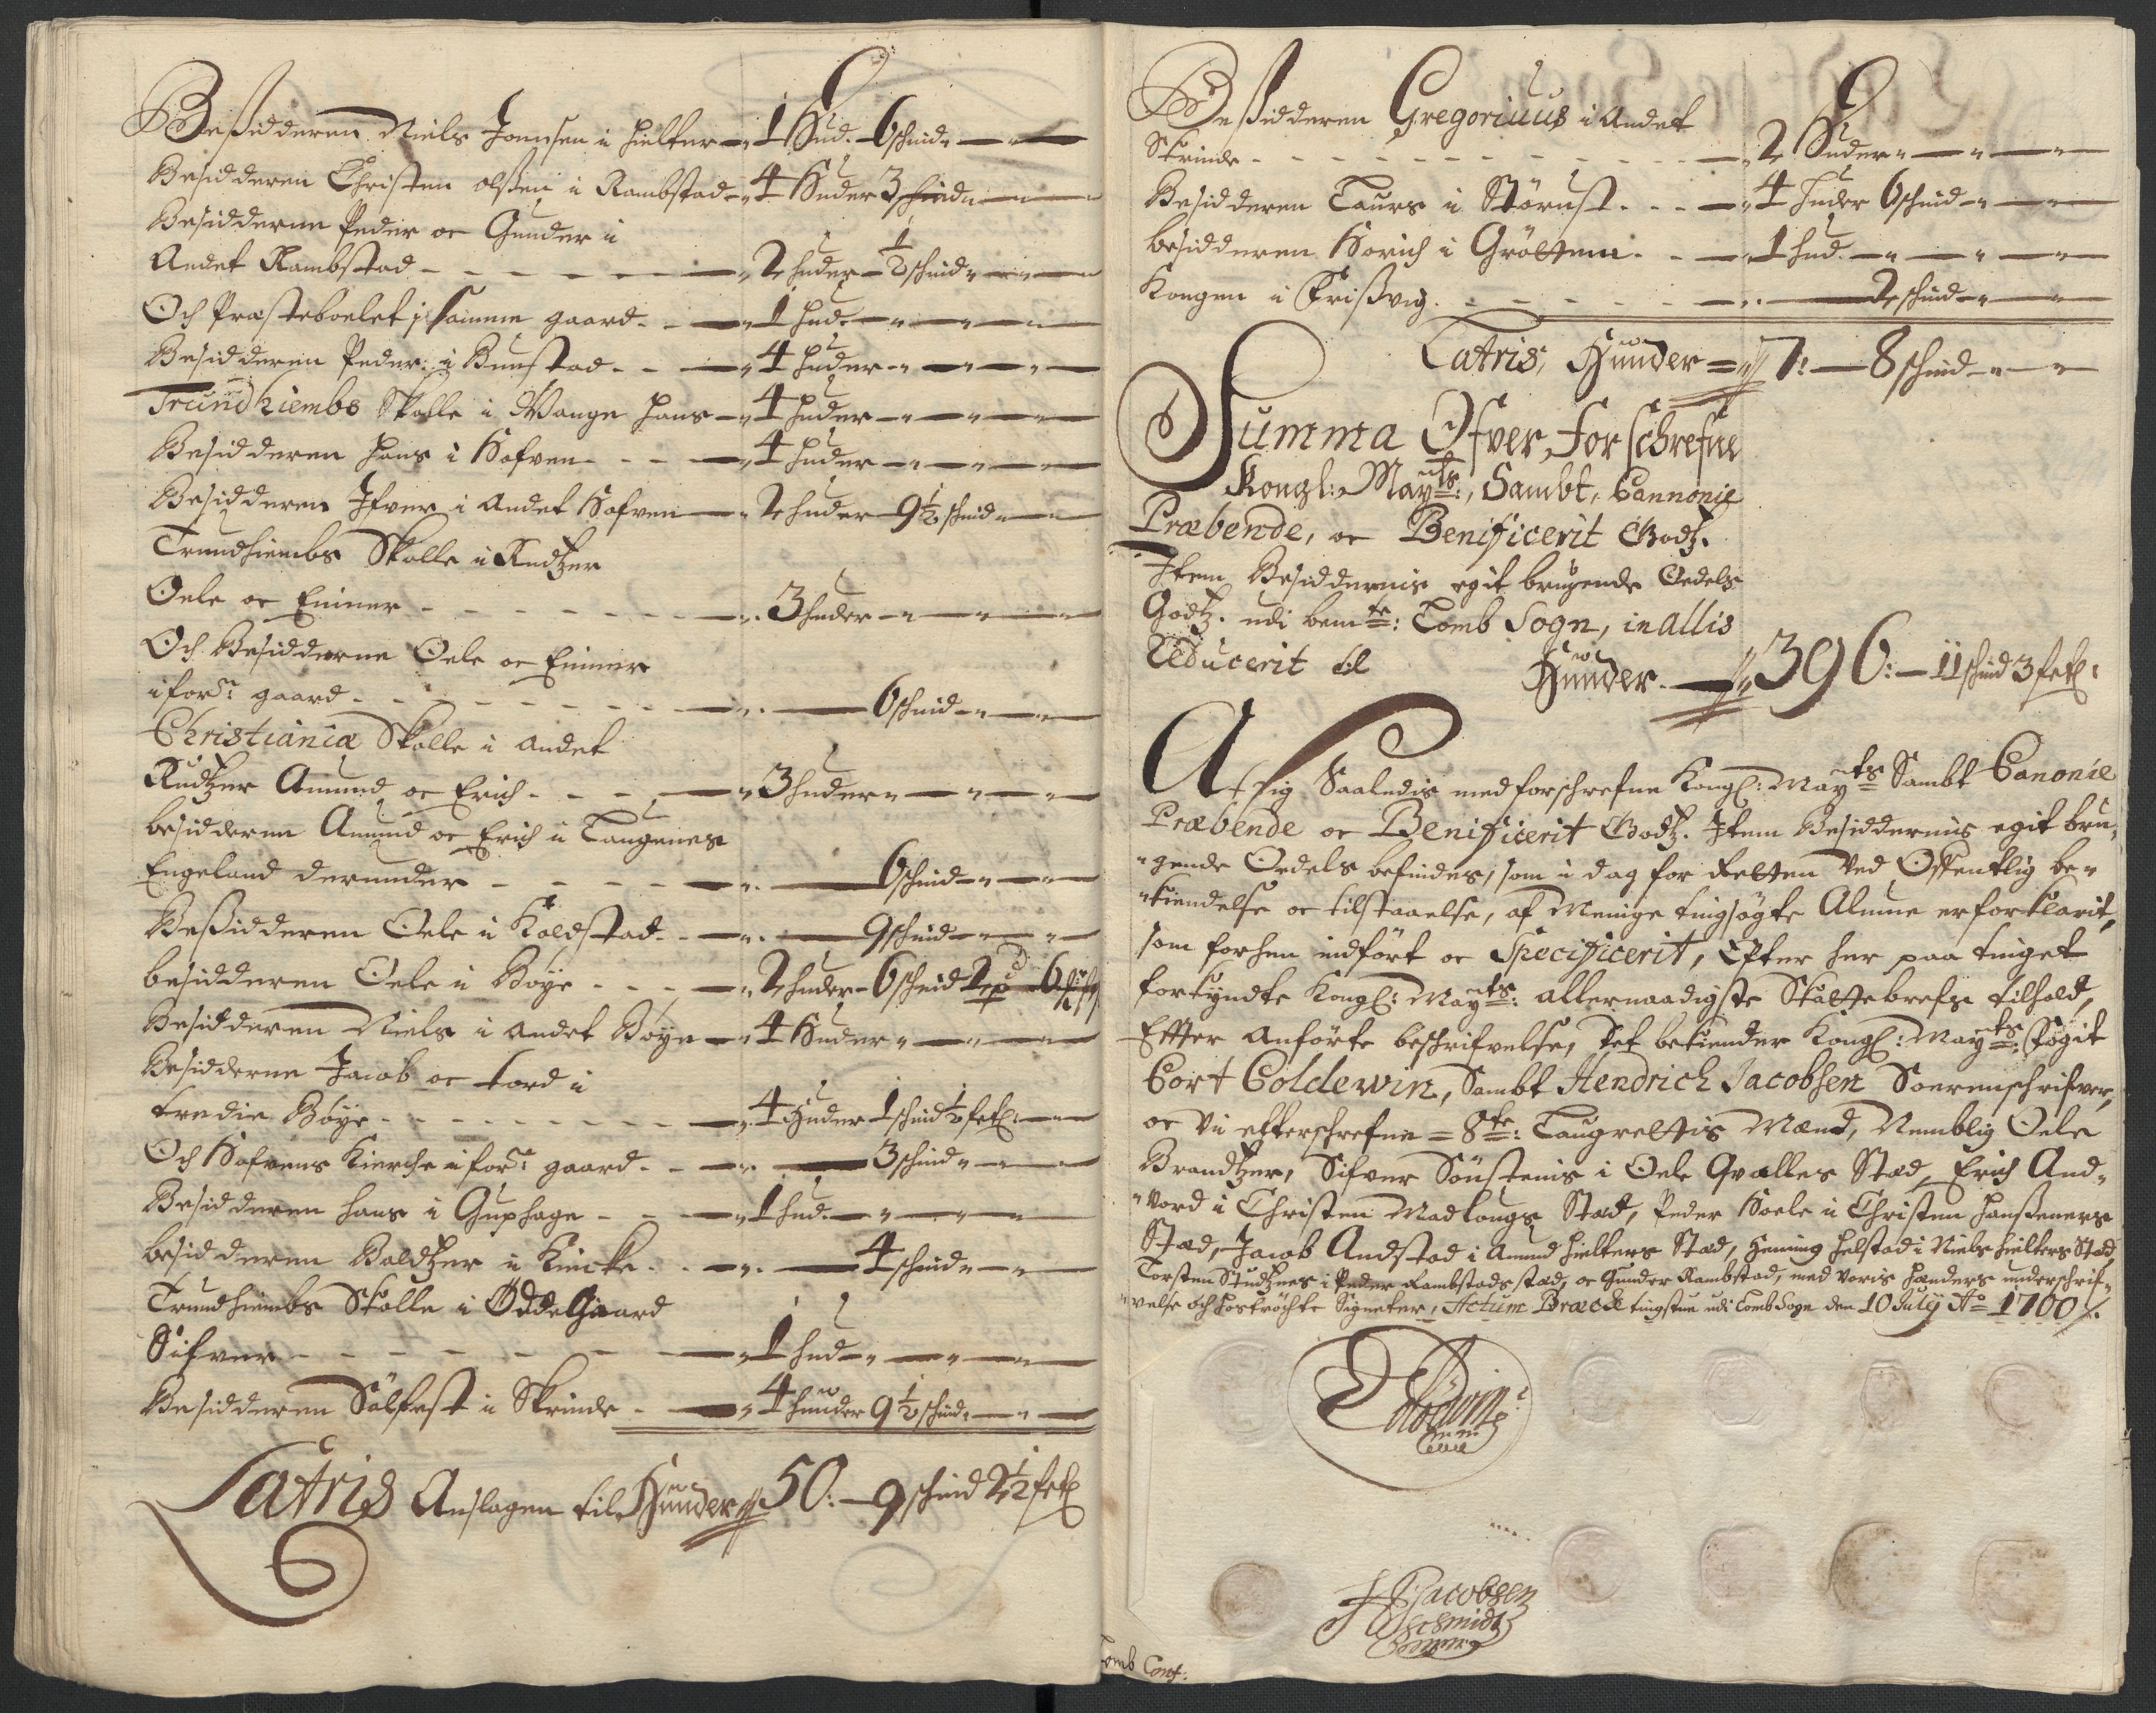 Besidderen Niels Joensen i Hielter - 1 Hud. 6 schind
Besidderen Christen olsen i Rambstad - 4 Huder 3 schind
Besidderne Peder oc Gunder i
Andet Rambstad - 2 huder - ½ schind
Och Præsteboelet i samme gaard - 1 hud.
Besidderen Peder i Bunstad - 4 huder
Trundhiembs Skolle i Wange Hans - 4 huder
Besidderen Hans i Hofven - 4 huder
Besidderen Ifver i Andet Hofven - 2 huder - 9½ schind
Trundhiembs Skolle i Rudtzer
Oele oc Einer - 3 huder
Och Besidderne Oele oc Einer
i forne gaard - 6 schind
Christiania Skolle i andet
Rudtzer Amund oc Erich - 3 huder
besidderen Amund oc Erich i Tangenes
Engeland derunder - 6 schind
Bessidderen Oele i Koldstad - 9 schind
besidderen Oele i Böye - 2 huder - 6 schind
Besidderen Niels i andet Böye - 4 Huder
Besidderne Jacob oc Tord i
tredie Böye - 4 Huder 1 schind ½ fetl:
Och Hofvens Kierche i forne gaard - 3 schind
Besidderen Hans i Guphage - 1 hud.
besidderen Baldtzer i Kircke - 4 schind
Trundhiembs Skolle i Ödde Gaard
Sifver - 1 hud
Besidderen Sölfest i Skrinde - 4 hunder 9½ schind
Latris Anslagen til Hunder 50: - 9 schind 2½ fetl
Bessidderen Gregoriuus i Andet
Skrinde - 2 Huder
Besidderen Laurs i Störust - 4 huder 6 schind
besidderen Horich i Gröttem - 1 hud.
Kongen i Krissvig - 2 schind
Latris, Hunder = 7: - 8 schind
Summa Ofver, For schrefne
Kongl: Mayts:, Sambt, Cannonie
Præbende, oc Benificerit Godtz.
Item Besiddernis egit brugende Oedels
Godtz. udi bemte: Tomb Sogn, in Allis
Reducerit til Hunder - 396: - 11 schind 3 fetl:
Af sig Saaledis med forschrefne Kongl: Mayts Sambt Canonie
Præbende oc Benificerit Godtz. Item Besiddernis egit bru-
gende Oedels befindes, som i dag for Retten ved Offentlig be-
kiendelse oc tilstaaelse, af Menige tingsögte Almue er forklarit,
som forhen indfört oc Specificerit, Efter her paa tinget
forkyndte Kongl: Mayts: allernaadigste Skattebrefs tilhold,
Effter anförte beschrifvelse, Det bekiender Kongl: Mayts: Fogit
Cort Coldewin, Sambt Hendrich Jacobsen Soerenschrifver,
oc Vi efterschrefne = 8te: Laugrettis Mænd, Nemblig Oele
Brandtzer, Sifver Sönstenis i Oele Qvalles Stæd, Erich And-
vord i Christen Madlougs Stæd, Peder Hoele i Christen Hanseners
Stæd, Jacob Andstad i Amund Hielters Stæd, Henning Helstad i Niels Hielters Stæd,
Torsten Studtznes i Peder Rambstads stæd, oc Gunder Rambstad, med voris hænders underschrif-
velse och hoströchte Signeter, Actum Bræcke tingstue udi Tomb Sogn den 10 July Ao 1700 /.
Coldewin
HJacobsen
Schmidt
Tomb Cont: